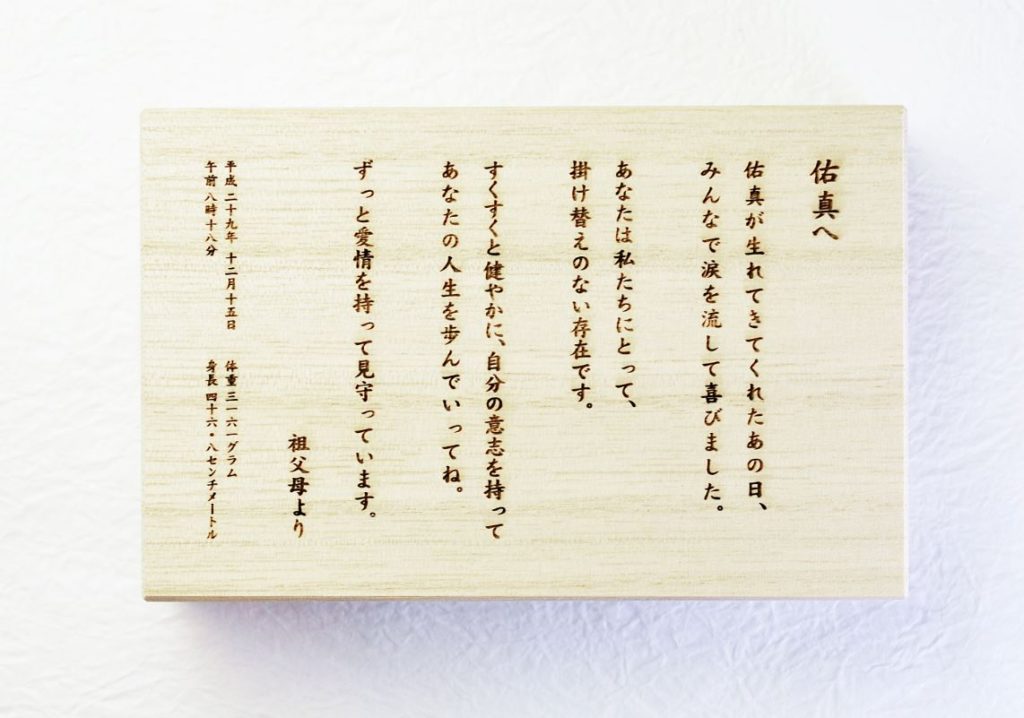 佑真へ
佑真が生れてきてくれたあの日、
みんなで涙を流して喜びました。
あなたは私たちにとって、
掛け替えのない存在です。
すくすくと健やかに、自分の意志を持って
あなたの人生を歩んでいってね。
ずっと愛情を持って見守っています。
祖父母より
平成 二十九年 十二月十五日 体重 三一六一グラム
午前 八時十八分 身長 四十六・八センチメートル